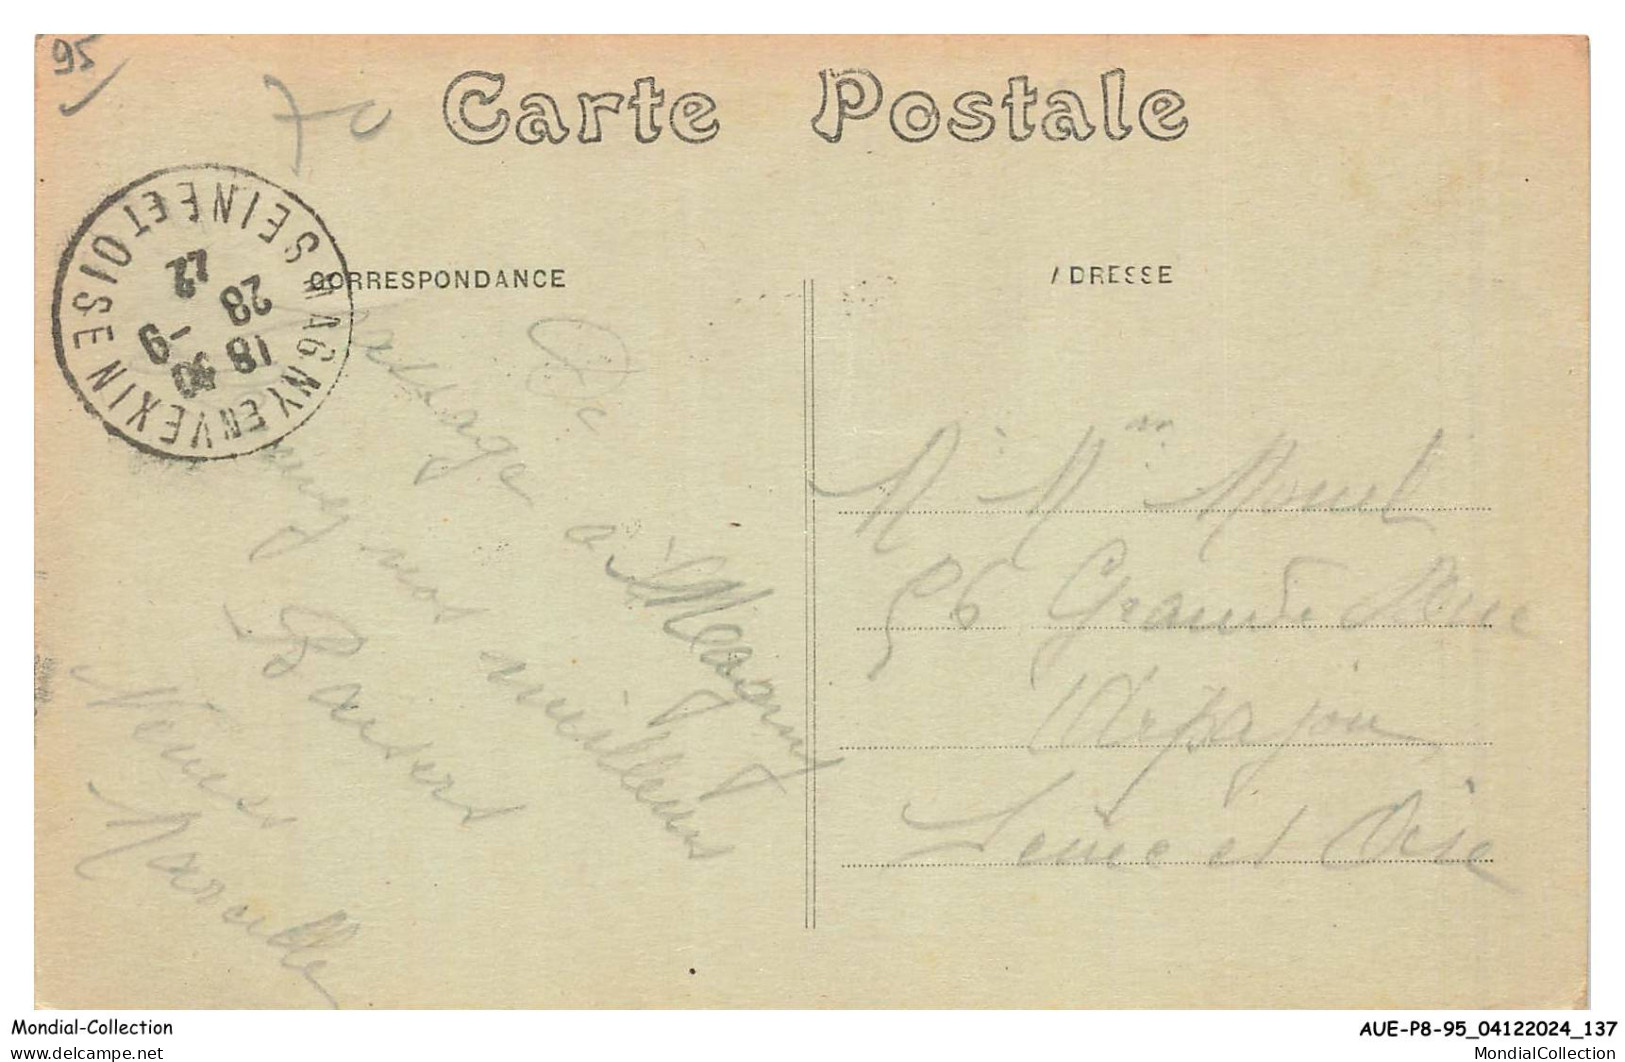 95
Carte Postale
MAGNY EN VEXIN
SEINE ET OISE
18 30
28 -9
22
CORRESPONDANCE
DRESSE
De
Passage à Magny
nos meilleurs
Baisers
Marcelle
M & Mme Morel
56 Grande Rue
Arpajon
Seine et Oise
Mondial-Collection
AUE-P8-95_04122024_137
www.delcampe.net
MondialCollection